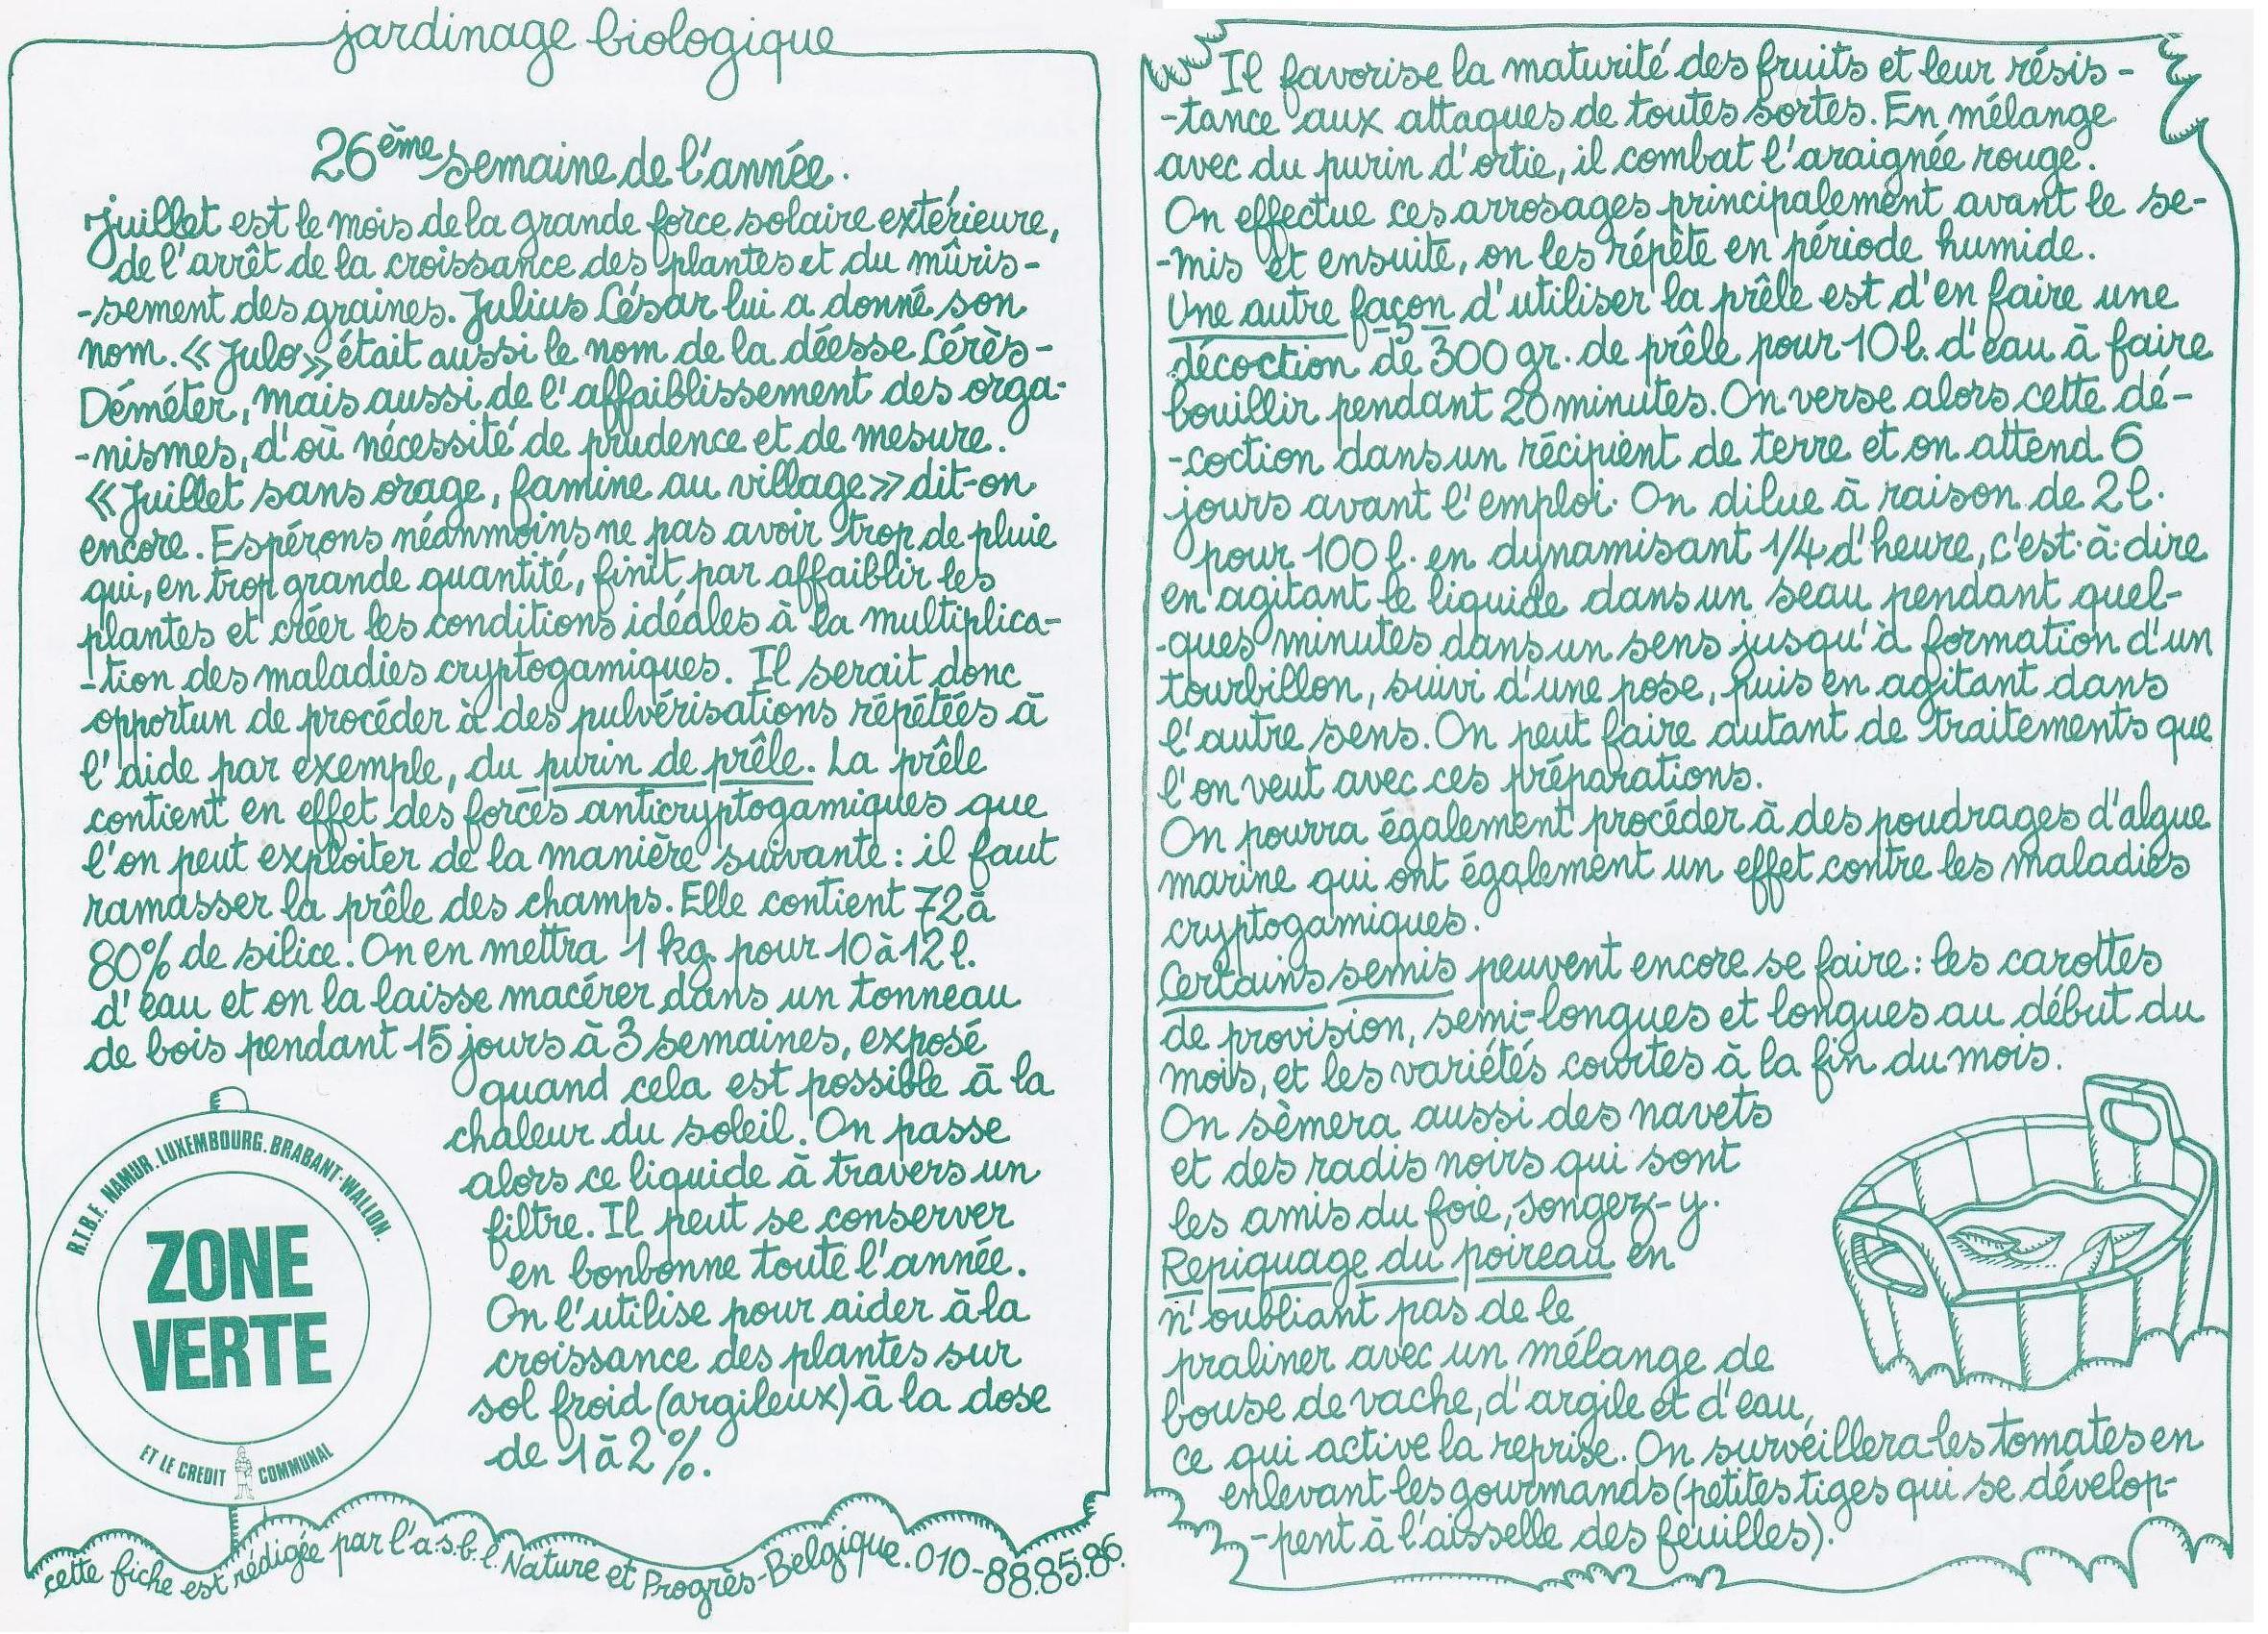 jardinage biologique
26ème semaine de l'année.
Juillet est le mois de la grande force solaire extérieure,
de l'arrêt de la croissance des plantes et du mûris-
-sement des graines. Julius César lui a donné son
nom. « Julo » était aussi le nom de la déesse Cérès-
Déméter, mais aussi de l'affaiblissement des orga-
-nismes, d'où nécessité de prudence et de mesure.
« Juillet sans orage, famine au village » dit-on
encore. Espérons néanmoins ne pas avoir trop de pluie
qui, en trop grande quantité, finit par affaiblir les
plantes et créer les conditions idéales à la multiplica-
-tion des maladies cryptogamiques. Il serait donc
opportun de procéder à des pulvérisations répétées à
l'aide par exemple, du purin de prêle. La prêle
contient en effet des forces anticryptogamiques que
l'on peut exploiter de la manière suivante : il faut
ramasser la prêle des champs. Elle contient 72 à
80% de silice. On en mettra 1 kg. pour 10 à 12 l.
d'eau et on la laisse macérer dans un tonneau
de bois pendant 15 jours à 3 semaines, exposé
quand cela est possible à la
chaleur du soleil. On passe
alors ce liquide à travers un
filtre. Il peut se conserver
en bonbonne toute l'année.
On l'utilise pour aider à la
croissance des plantes sur
sol froid (argileux) à la dose
de 1 à 2 %.
R.T.B.F. NAMUR. LUXEMBOURG. BRABANT-WALLON.
ZONE
VERTE
ET LE CREDIT COMMUNAL
cette fiche est rédigée par l'a.s.b.l. Nature et Progrès-Belgique. 010-88.85.86.
Il favorise la maturité des fruits et leur résis-
-tance aux attaques de toutes sortes. En mélange
avec du purin d'ortie, il combat l'araignée rouge.
On effectue ces arrosages principalement avant le se-
-mis et ensuite, on les répète en période humide.
Une autre façon d'utiliser la prêle est d'en faire une
décoction de 300 gr. de prêle pour 10 l. d'eau à faire
bouillir pendant 20 minutes. On verse alors cette dé-
-coction dans un récipient de terre et on attend 6
jours avant l'emploi. On dilue à raison de 2 l.
pour 100 l. en dynamisant 1/4 d'heure, c'est-à-dire
en agitant le liquide dans un seau pendant quel-
-ques minutes dans un sens jusqu'à formation d'un
tourbillon, suivi d'une pose, puis en agitant dans
l'autre sens. On peut faire autant de traitements que
l'on veut avec ces préparations.
On pourra également procéder à des poudrages d'algue
marine qui ont également un effet contre les maladies
cryptogamiques.
Certains semis peuvent encore se faire : les carottes
de provision, semi-longues et longues au début du
mois, et les variétés courtes à la fin du mois.
On sèmera aussi des navets
et des radis noirs qui sont
les amis du foie, songez-y.
Repiquage du poireau en
n'oubliant pas de le
praliner avec un mélange de
bouse de vache, d'argile et d'eau,
ce qui active la reprise. On surveillera les tomates en
enlevant les gourmands (petites tiges qui se dévelop-
-pent à l'aisselle des feuilles).